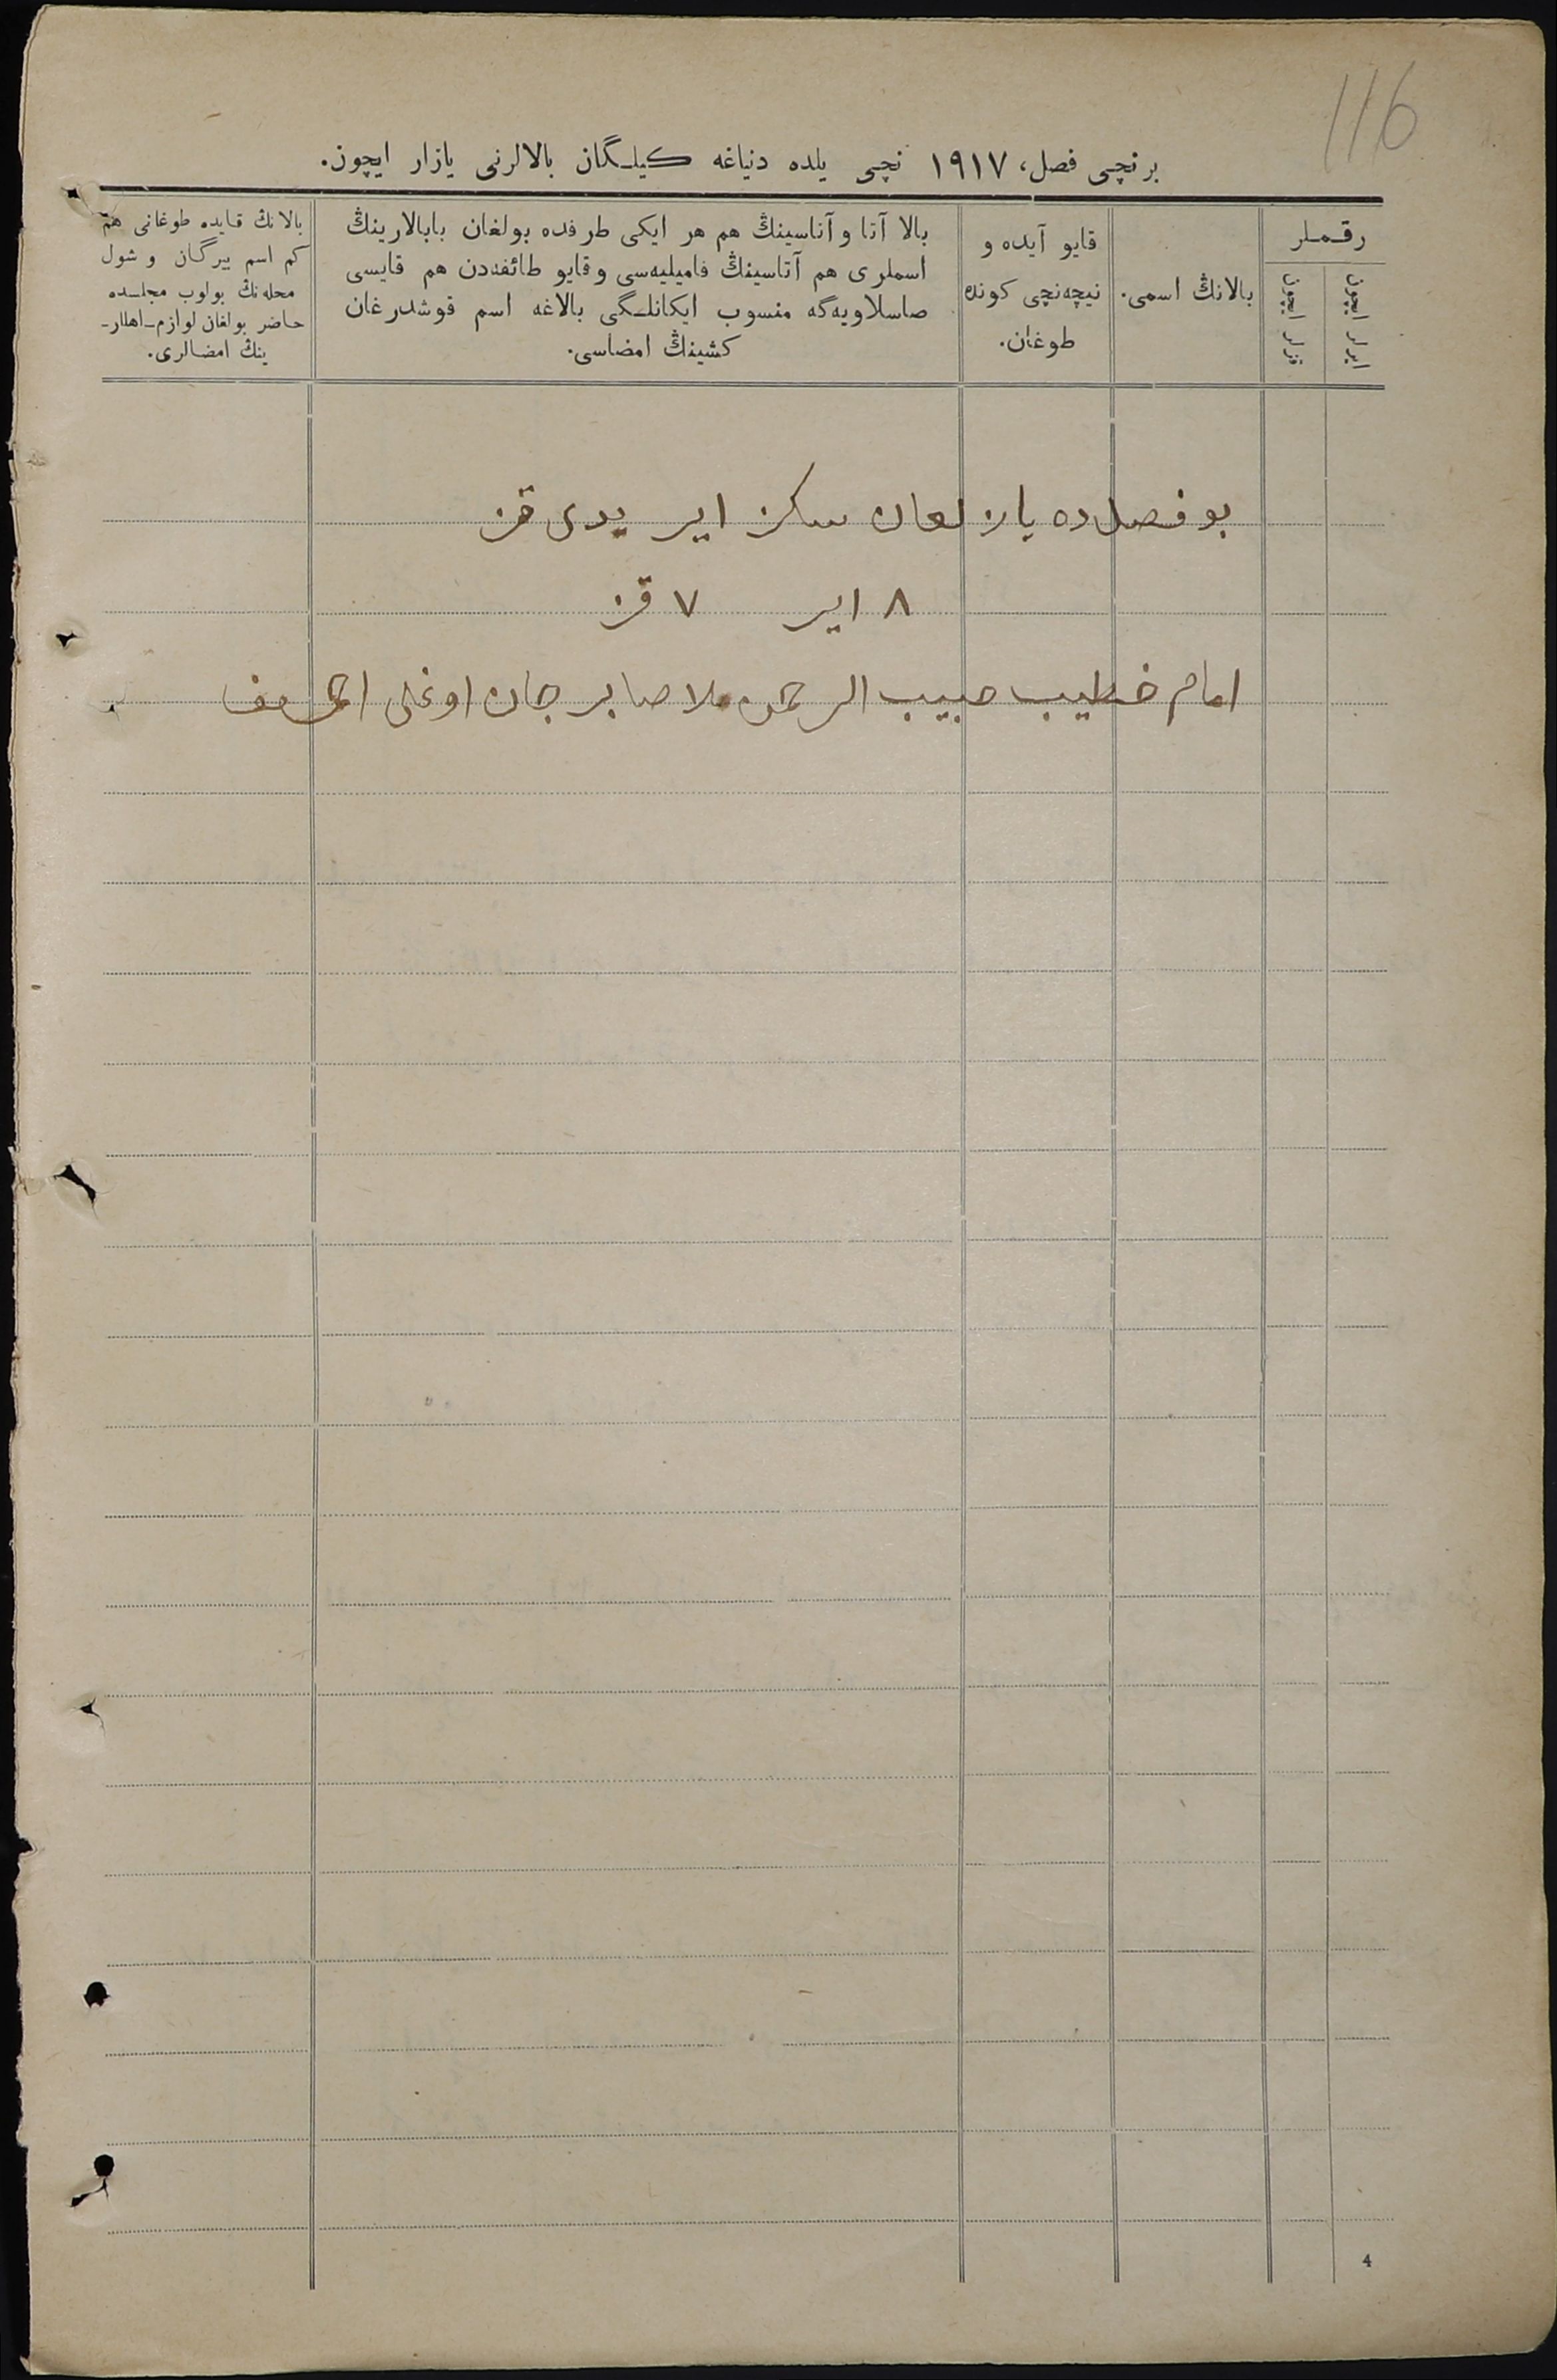 116
برنچی فصل، ١٩١٧ نچی یلده دنیاغه کیلـگان بالالرنی یازار ایچون.
رقـمـلر
ایرلر ایچون
قزلر ایچون
بالانڭ اسمی.
قایو آیده و
نیچه‌نچی کونده
طوغان.
بالا آتا و آناسینڭ هم هر ایکی طرفده بولغان بابالارینڭ
اسملری هم آتاسینڭ فامیلیه‌سی و قایو طائفه‌دن هم قایسی
صاسلاویه‌گه منسوب ایکانلـگی بالاغه اسم قوشدرغان
کشینڭ امضاسی.
بالانڭ قایده طوغانی هم
کم اسم بیرگان و شول
محله‌نڭ بولوب مجلـسده
حاضر بولغان لوازم-اهللر-
ینڭ امضالری.
بو فصل ده یازلغان سکز ایر یدی قز
٨ ایر ٧ قز
امام خطیب حبیب الرحمن ملا صابرجان اوغلی
4